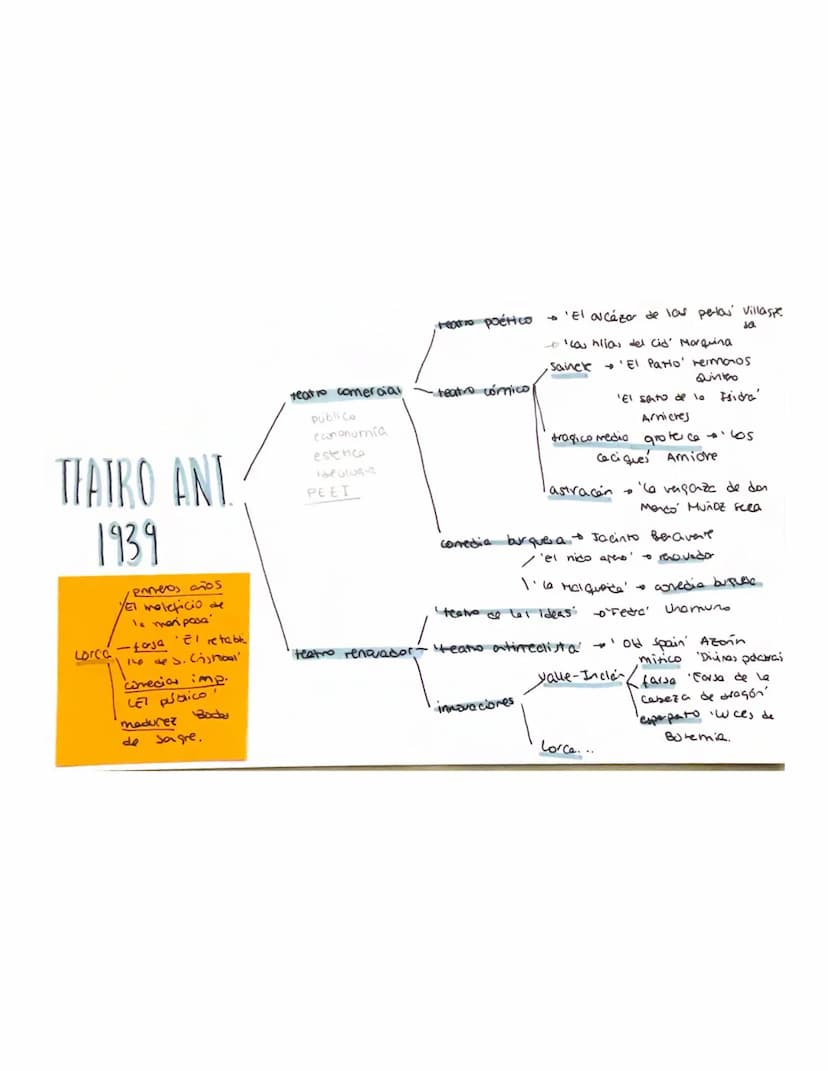 TEATRO ANT.
1939
teatro comercial
publico
economía
estetica
ideologia
PEEI
teatro poético → 'El alcázar de las perlas' Villaespe
sa
→ 'Las hijas del Cid' Marquina
teatro cómico
sainete → 'El Patio' Hermanos
Quintero
'El santo de la Isidra'
Arniches
tragicomedia grotesca → 'Los
caciques' Arniche
astracán → 'La venganza de don
Mendo' Muñoz Seca
comedia burguesa → Jacinto Benavente
'El nido ajeno' → renovador
'La Malquerida' → comedia burguesa
teatro renovador
'teatro de las ideas' → 'Fedra' Unamuno
'teatro antirrealista' → 'Old Spain' Azorín
innovaciones
Valle-Inclán
mítico 'Divinas palabras'
farsa 'Farsa de la
cabeza de dragón'
esperpento 'Luces de
Bohemia.
Lorca...
Lorca
primeros años
'El maleficio de
la mariposa'
farsa 'El retabli
llo de D. Cristóbal'
comedias imp.
'El público'
madurez Bodas
de sangre.